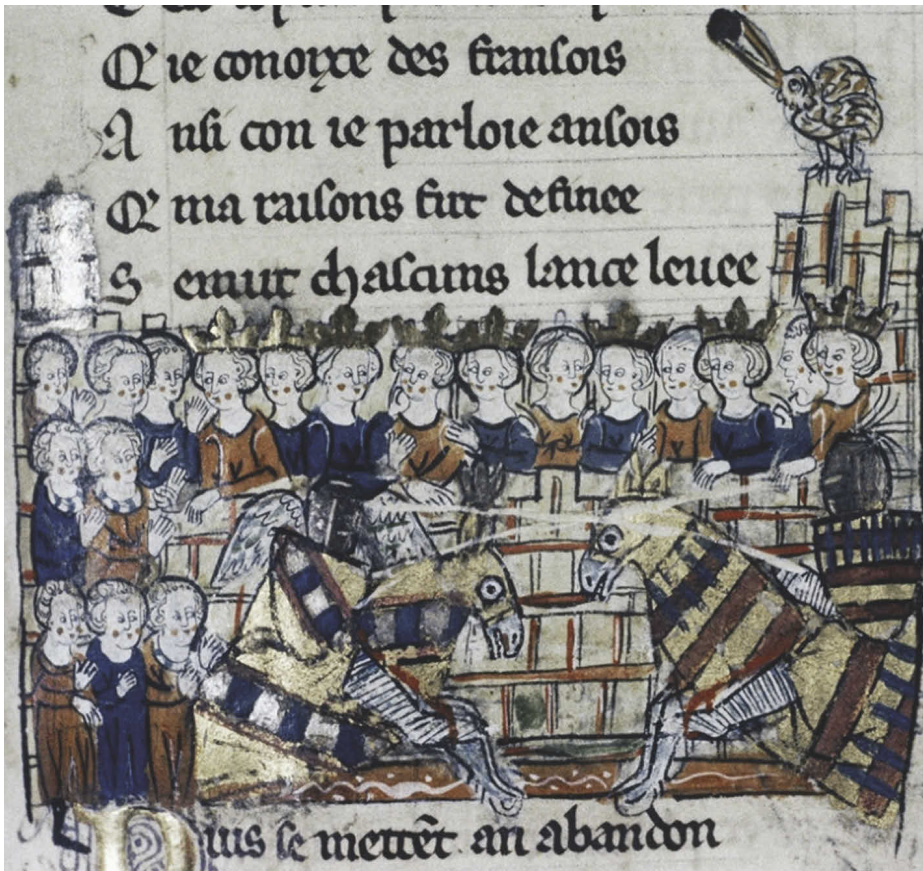 Q' ie conoixe des fransois
A nsi con ie parloie ansois
Q' ma raisons fut definee
S emut chascuns lance leuee
Puis se mettẽt an abandon